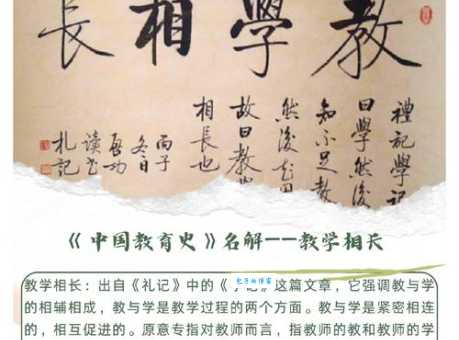 教學相長
禮記學記
曰學然後
知不足教
然後知困
故曰教學
相長也
丙子
冬日
啓功
讀書
札記
《中国教育史》名解--教学相长
教学相长：出自《礼记》中的《学记》这篇文章，它强调教与学
的相辅相成，教与学是教学过程的两个方面。教与学是紧密相连
的，相互促进的。原意专指对教师而言，指教师的教和教师的学